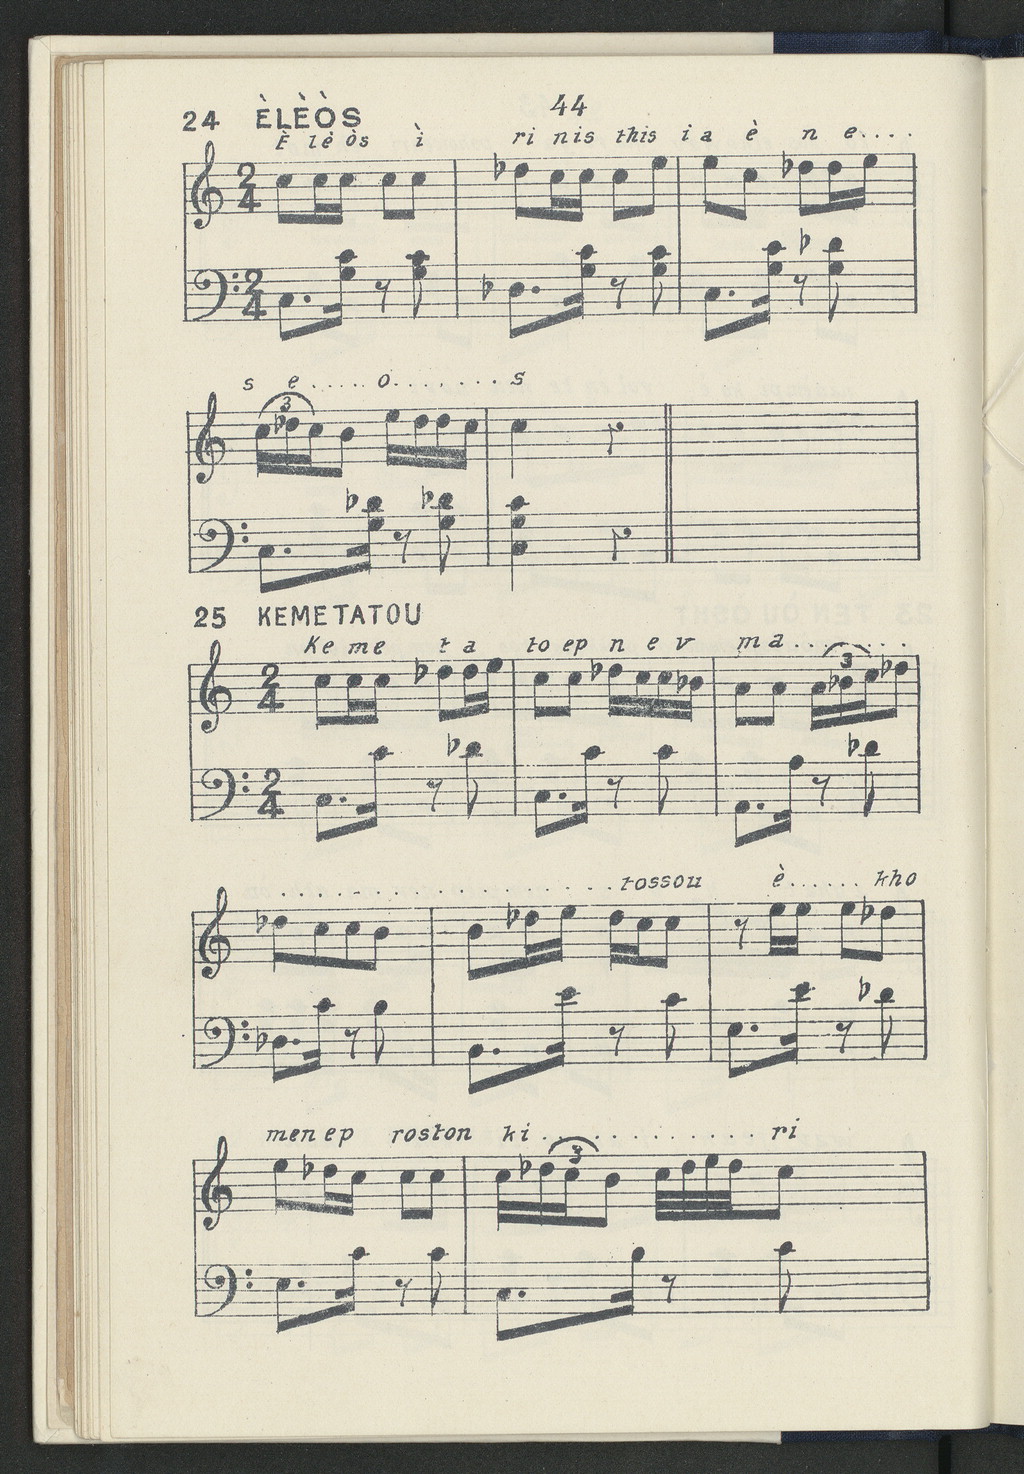 44
24 ÈLÈÒS
È lè òs ì ri nis this i a è n e....
s e.....o.......s
25 KEMETATOU
Ke me t a to ep n e v m a........
.....................tossou è...... kho
men ep roston ki............ri